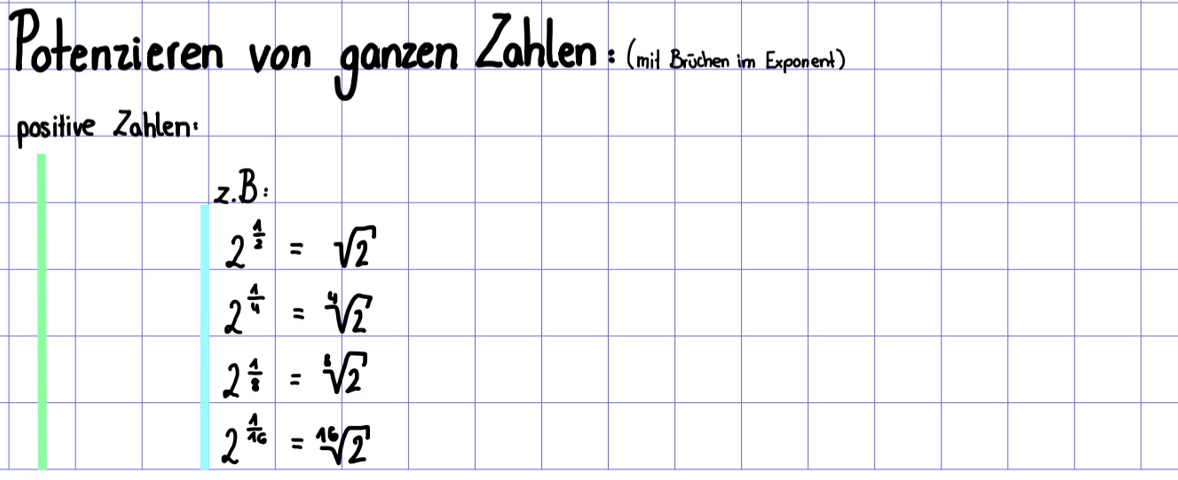 Potenzieren von ganzen Zahlen: (mit Brüchen im Exponent)
positive Zahlen:
z.B:
2^(1/2) = √2
2^(1/4) = ⁴√2
2^(1/8) = ⁸√2
2^(1/16) = ¹⁶√2